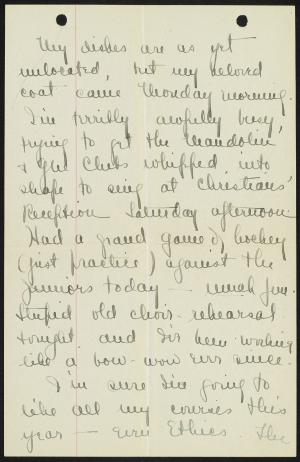 My dishes are as yet
unlocated, but my beloved
coat came Monday morning.
I'm terribly awfully busy,
trying to get the Mandolin
& Glee Clubs whipped into
shape to sing at Christians'
Reception Saturday afternoon.
Had a grand game of hockey
(just practice) against the
Juniors today — much fun.
Stupid old choir rehearsal
tonight and I've been working
like a bow-wow ever since.
I'm sure I'm going to
like all my courses this
year — even Ethics. The